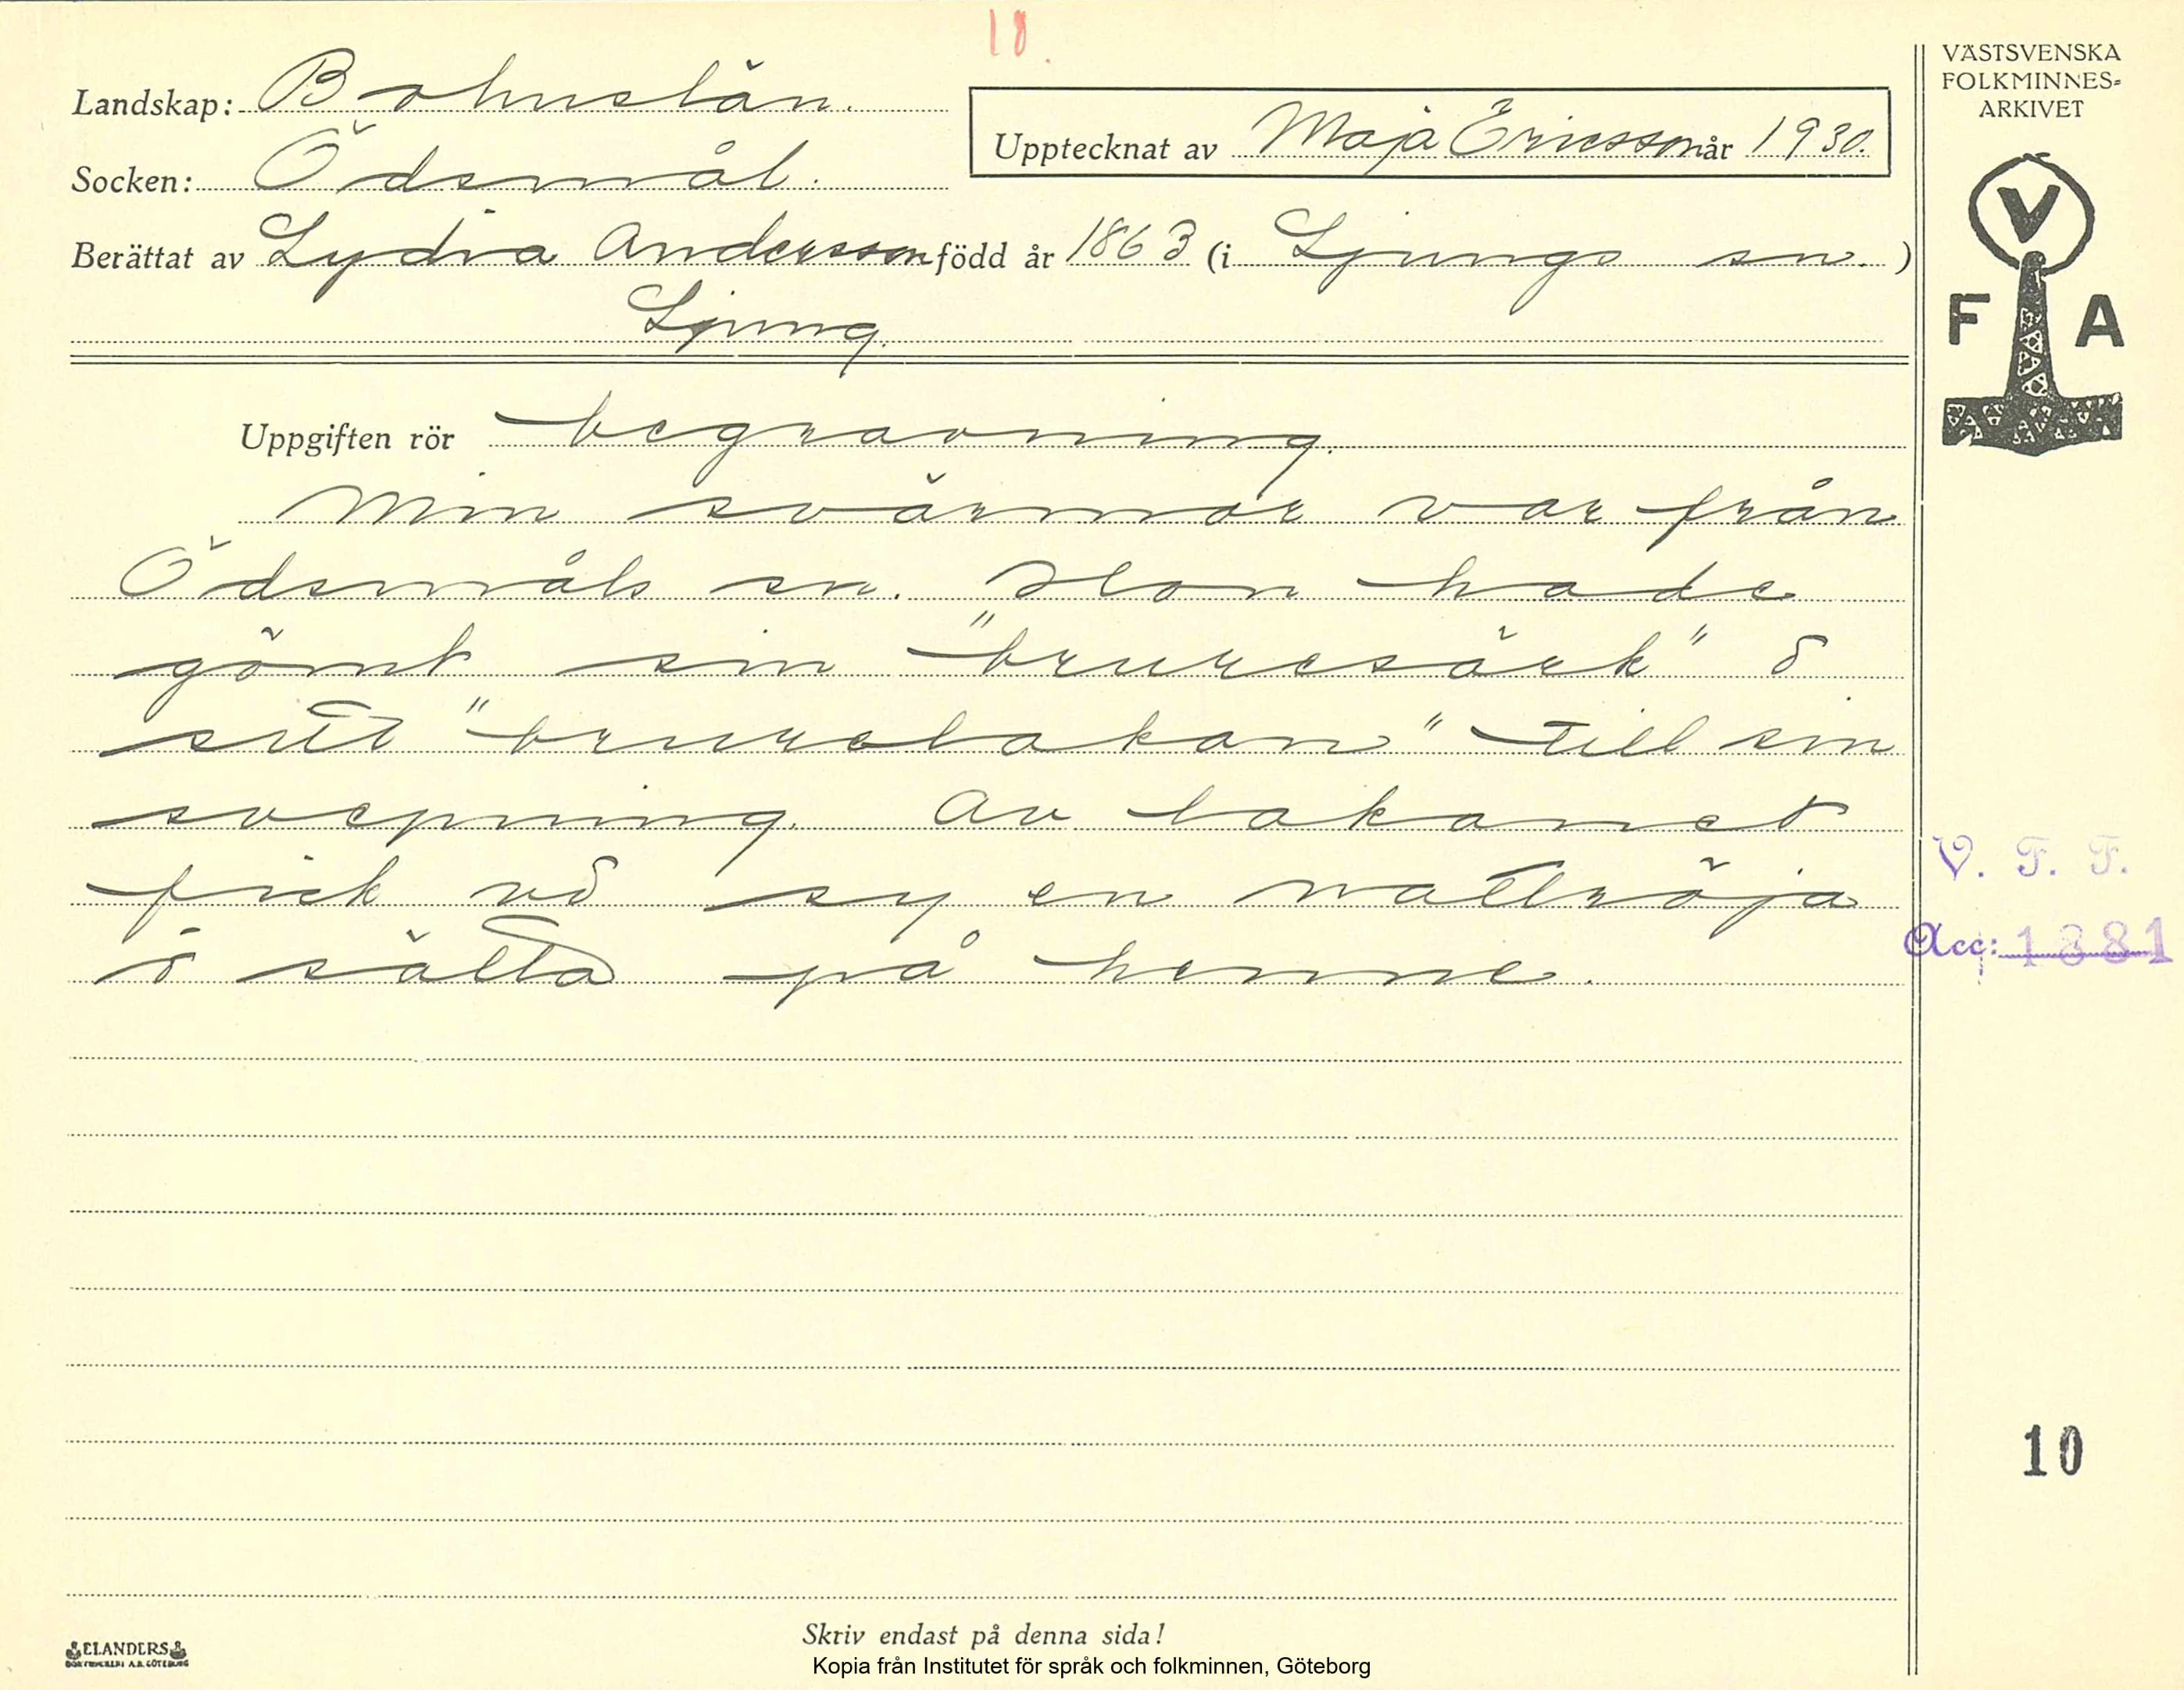 18.
Landskap: Bohuslän.
VÄSTSVENSKA
FOLKMINNES=
ARKIVET
Upptecknat av Maja Ericsson år 1930.
Socken: Ödsmål.
Berättat av Lydia Andersson född år 1863 (i Ljungs sn. )
Ljung.
V
F A
Uppgiften rör begravning.
Min svärmor var från
Ödsmåls sn. Hon hade
gömt sin "bruresärk" o
sitt "brurelakan" till sin
svepning. Av lakanet
fick vi sy en nattröja
o sätta på henne.
V. F. F.
Acc: 1881
10
ELANDERS
BOKTRYCKERI A.B. GÖTEBORG
Skriv endast på denna sida!
Kopia från Institutet för språk och folkminnen, Göteborg